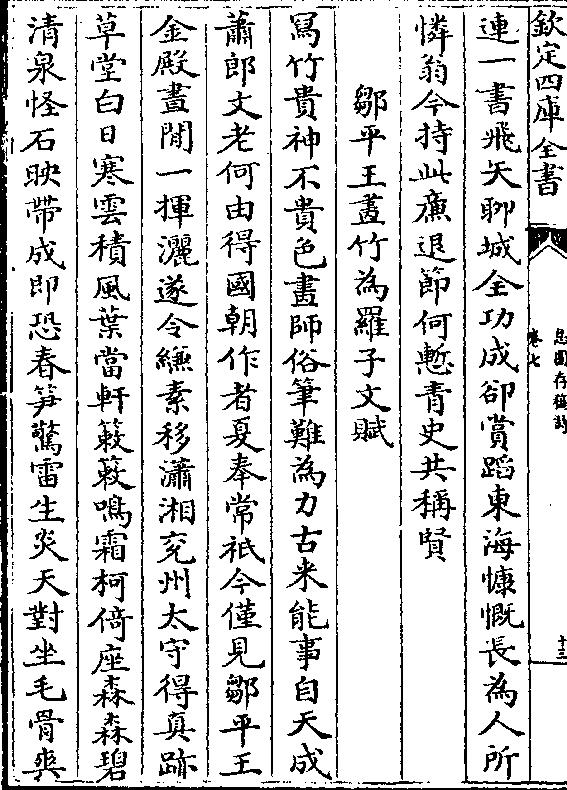 欽定四庫全書
息園存稿詩
卷七
十三
連一書飛矢聊城全功成卻賞蹈東海慷慨長為人所
憐翁今持此廉退節何慙青史共稱賢
鄒平王畫竹為羅子文賦
寫竹貴神不貴色畫師俗筆難為力古來能事自天成
蕭郎文老何由得國朝作者夏奉常祇今僅見鄒平王
金殿晝閒一揮灑遂令縑素移瀟湘兖州太守得真跡
草堂白日寒雲積風葉當軒簌簌鳴霜柯倚座森森碧
清泉怪石映帶成即恐春笋驚雷生炎天對坐毛骨爽